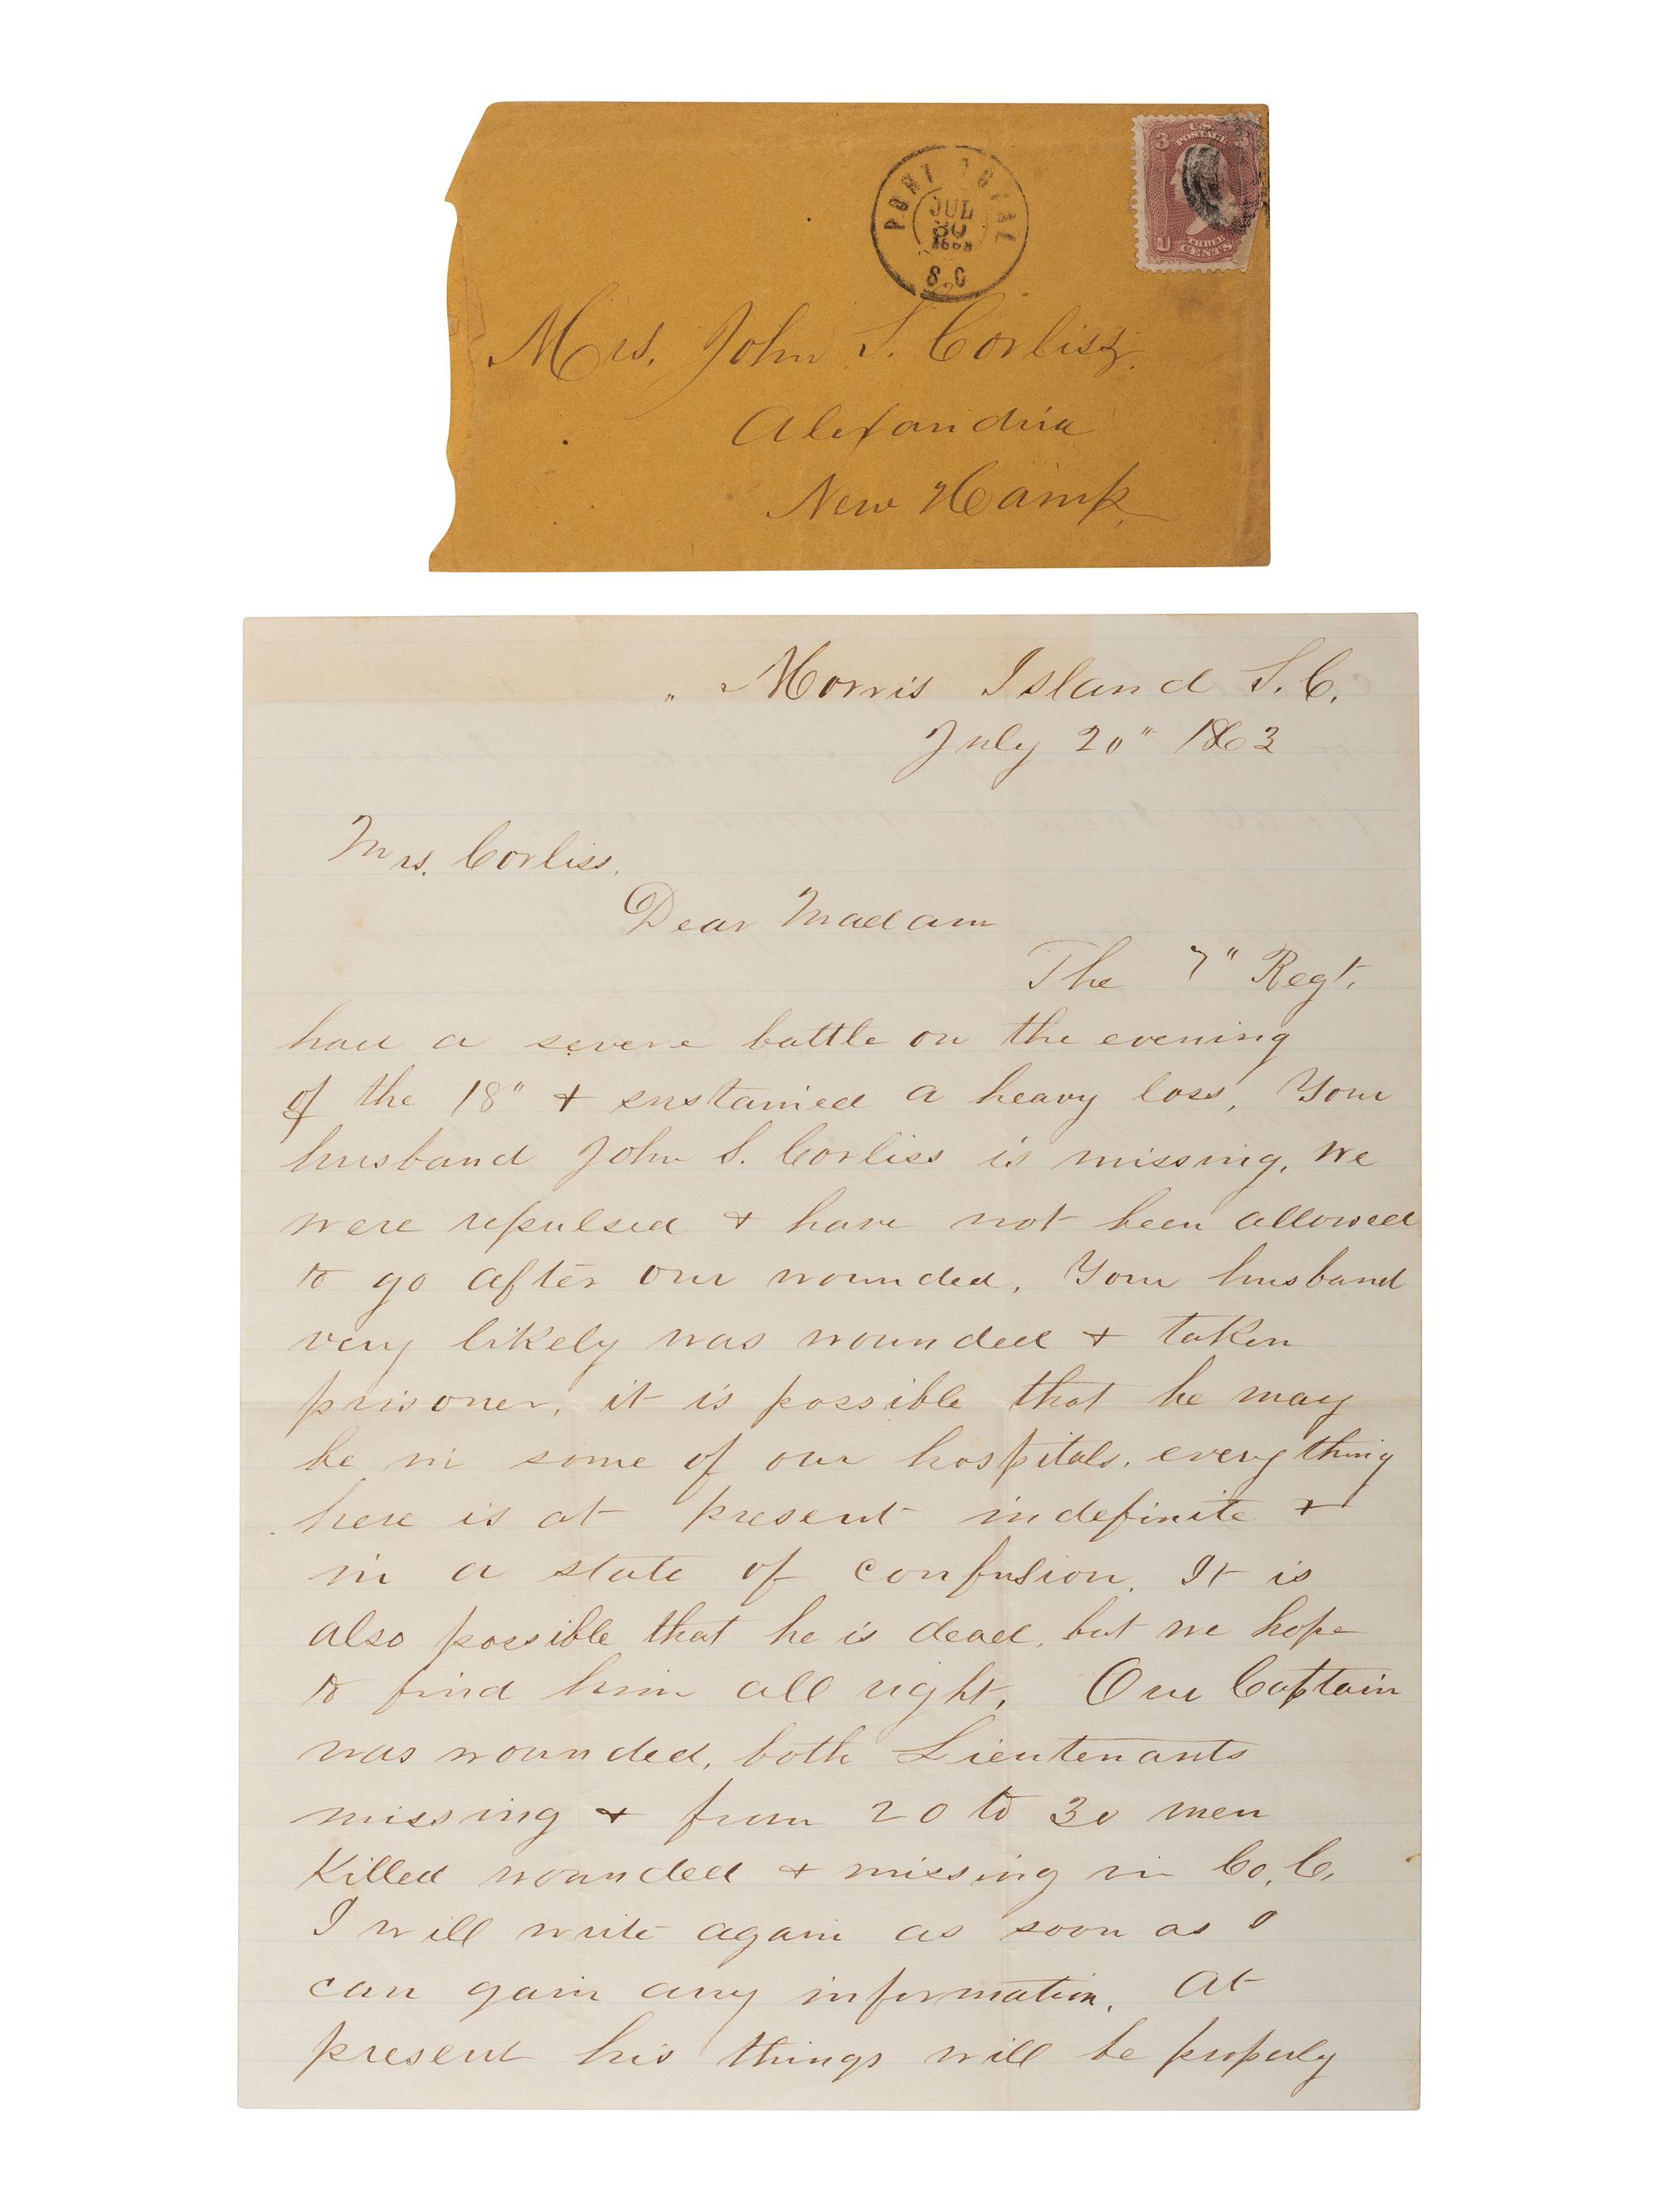 PORT ROYAL
JUL
30
1863
S.C
U.S.
POSTAGE
3 3
U
THREE
CENTS
Mrs. John S. Corliss.
Alexandria
New Hamp.
" Morris Island S. C.
July 20" 1863
Mrs. Corliss.
Dear Madam
The 7" Regt.
had a severe battle on the evening
of the 18" & sustained a heavy loss, Your
husband John S. Corliss is missing. We
were repulsed & have not been allowed
to go after our wounded. Your husband
very likely was wounded & taken
prisoner, it is possible that he may
be in some of our hospitals. everything
here is at present indefinite &
in a state of confusion. It is
also possible that he is dead, but we hope
to find him all right. Our Captain
was wounded, both Lieutenants
missing & from 20 to 30 men
Killed wounded & missing in Co. C.
I will write again as soon as I
can gain any information. At
present his things will be properly